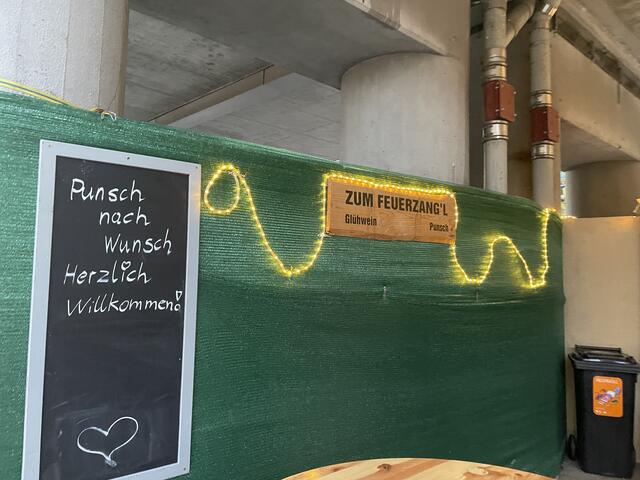 Punsch
nach
Wunsch
Herzlich
Willkommen!
ZUM FEUERZANG'L
Glühwein
Punsch